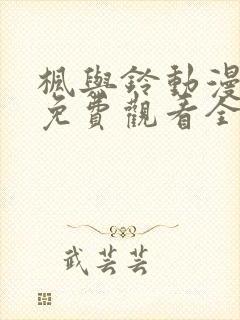 楓與鈴動漫
免費觀看全
武芸芸